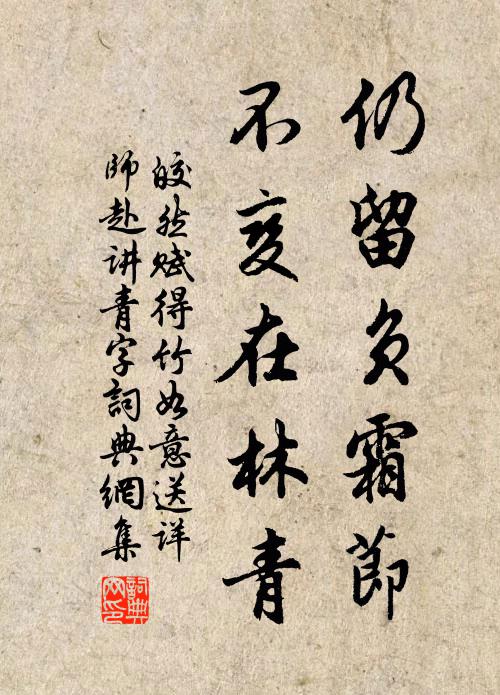 仍留负霜節
不变在林青
皎然赋得竹如意送详
師赴讲青字詞典網集
詞典
网印